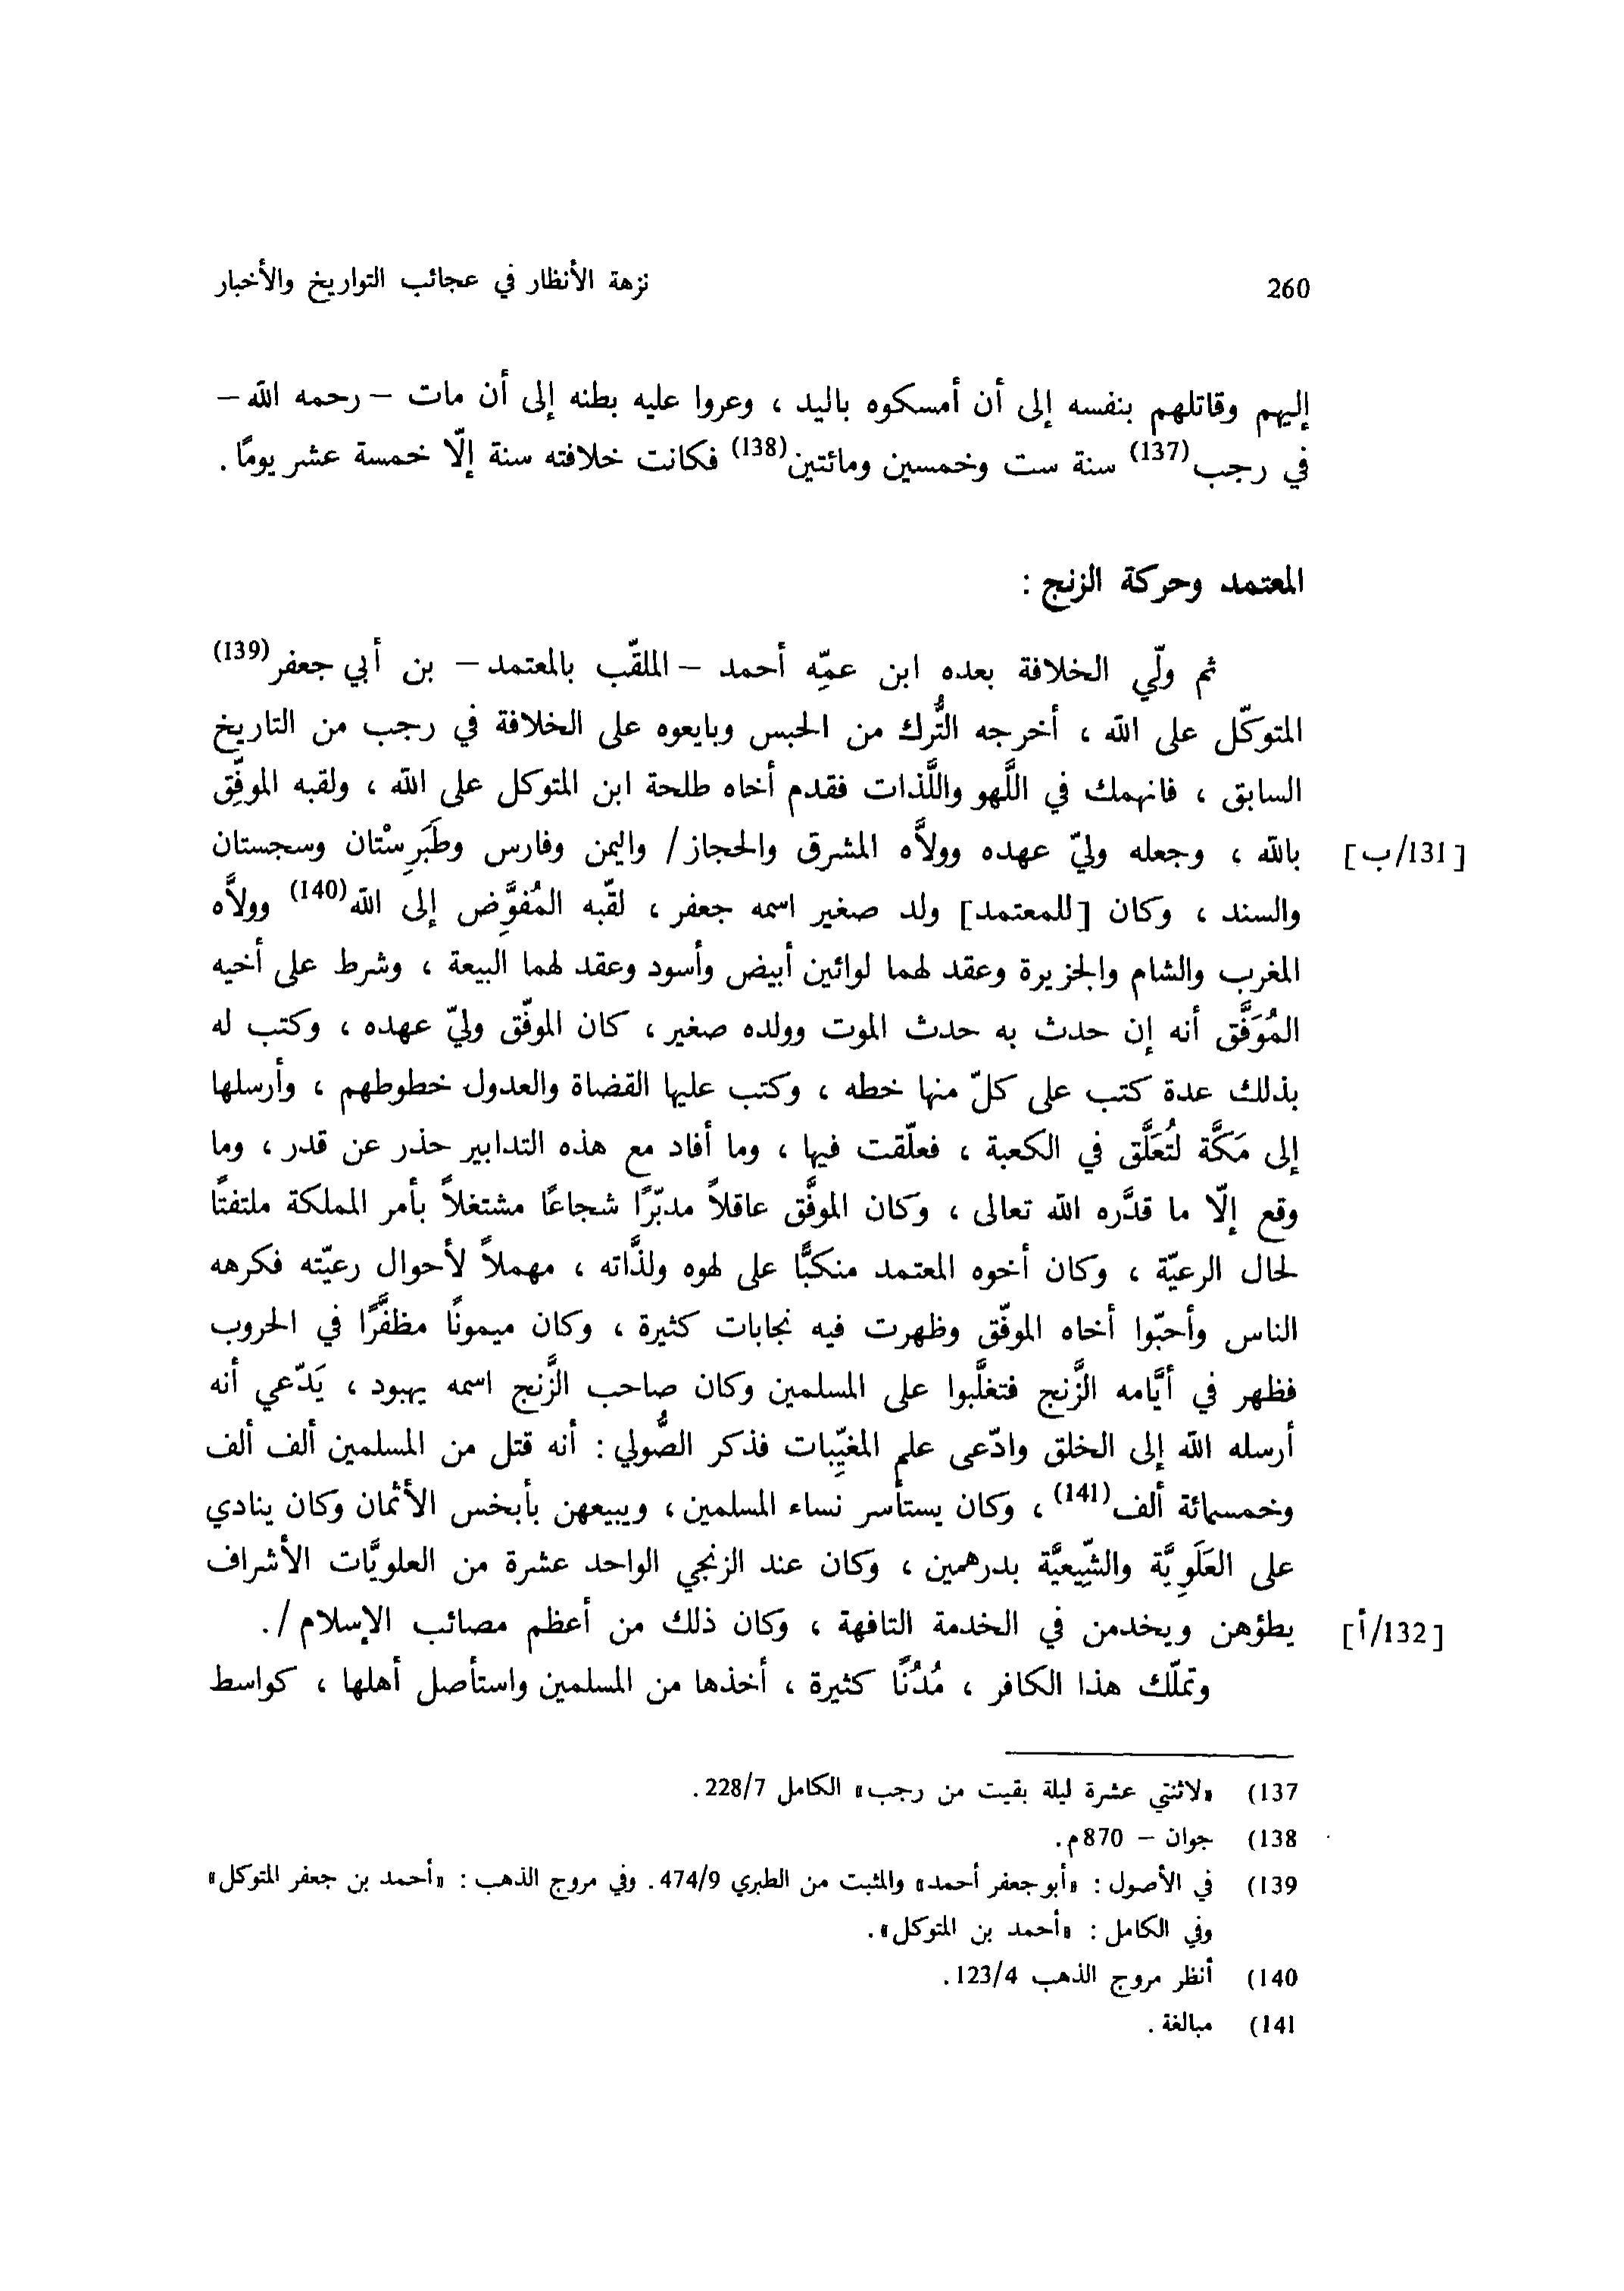 260 نزهة الأنظار في عجائب التواريخ والأخبار
إليهم وقاتلهم بنفسه إلى أن أمسكوه باليد ، وعروا عليه بطنه إلى أن مات – رحمه الله –
في رجب(137) سنة ست وخمسين ومائتين(138) فكانت خلافته سنة إلّا خمسة عشر يومًا .
المعتمد وحركة الزنج :
ثم ولّي الخلافة بعده ابن عمِّه أحمد – الملقّب بالمعتمد – بن أبي جعفر(139)
المتوكّل على الله ، أخرجه التُّرك من الحبس وبايعوه على الخلافة في رجب من التاريخ
السابق ، فانهمك في اللَّهو واللَّذات فقدم أخاه طلحة ابن المتوكل على الله ، ولقبه الموفِّق
[131/ب] بالله ، وجعله وليّ عهده وولاَّه المشرق والحجاز/ واليمن وفارس وطَبَرِسْتان وسجستان
والسند ، وكان [للمعتمد] ولد صغير اسمه جعفر ، لقّبه المُفوَّض إلى الله(140) وولاَّه
المغرب والشام والجزيرة وعقد لهما لوائين أبيض وأسود وعقد لهما البيعة ، وشرط على أخيه
المُوَفَّق أنه إن حدث به حدث الموت وولده صغير ، كان الموفّق وليّ عهده ، وكتب له
بذلك عدة كتب على كلّ منها خطه ، وكتب عليها القضاة والعدول خطوطهم ، وأرسلها
إلى مَكَّة لتُعَلَّق في الكعبة ، فعلّقت فيها ، وما أفاد مع هذه التدابير حذر عن قدر ، وما
وقع إلّا ما قدَّره الله تعالى ، وكان الموفَّق عاقلاً مدبّرًا شجاعًا مشتغلاً بأمر المملكة ملتفتًا
لحال الرعيّة ، وكان أخوه المعتمد منكبًّا على لهوه ولذَّاته ، مهملاً لأحوال رعيّته فكرهه
الناس وأحبّوا أخاه الموفّق وظهرت فيه نجابات كثيرة ، وكان ميمونًا مظفَّرًا في الحروب
فظهر في أيَّامه الزَّنج فتغلَّبوا على المسلمين وكان صاحب الزَّنج اسمه يهبود ، يَدّعي أنه
أرسله الله إلى الخلق وادّعى علم المغيّبات فذكر الصُّولي : أنه قتل من المسلمين ألف ألف
وخمسمائة ألف(141) ، وكان يستأسر نساء المسلمين ، ويبيعهن بأبخس الأثمان وكان ينادي
على العَلَوِيَّة والشِّيعيَّة بدرهمين ، وكان عند الزنجي الواحد عشرة من العلويَّات الأشراف
[132/أ] يطؤهن ويخدمن في الخدمة التافهة ، وكان ذلك من أعظم مصائب الإسلام/ .
وتملّك هذا الكافر ، مُدُنًا كثيرة ، أخذها من المسلمين واستأصل أهلها ، كواسط
137) «لاثنتي عشرة ليلة بقيت من رجب» الكامل 228/7 .
138) جوان – 870م .
139) في الأصول : «أبو جعفر أحمد» والمثبت من الطبري 474/9 . وفي مروج الذهب : «أحمد بن جعفر المتوكل»
وفي الكامل : «أحمد بن المتوكل» .
140) أنظر مروج الذهب 123/4 .
141) مبالغة .